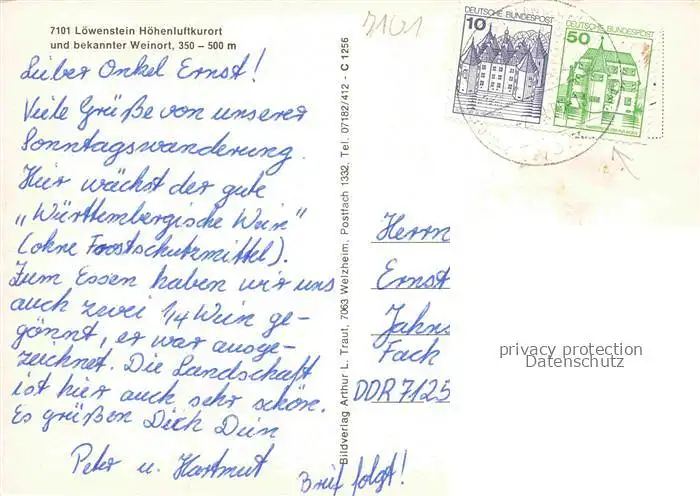 7101 Löwenstein Höhenluftkurort
und bekannter Weinort, 350 – 500 m
Lieber Onkel Ernst!
Viele Grüße von unserer
Sonntagswanderung.
Hier wächst der gute
„Württembergische Wein"
(ohne Frostschutzmittel).
Zum Essen haben wir uns
auch zwei 1/4 Wein ge-
gönnt, er war ausge-
zeichnet. Die Landschaft
ist hier auch sehr schön.
Es grüßen Dich Dein
Peter u. Hartmut
Brief folgt!
Bildverlag Arthur L. Traut, 7063 Welzheim, Postfach 1332, Tel. 07182/412 - C 1256
7101
DEUTSCHE BUNDESPOST
10
DEUTSCHE BUNDESPOST
50
Herrn
Ernst
Jahns
Fach
DDR 7125
privacy protection
Datenschutz